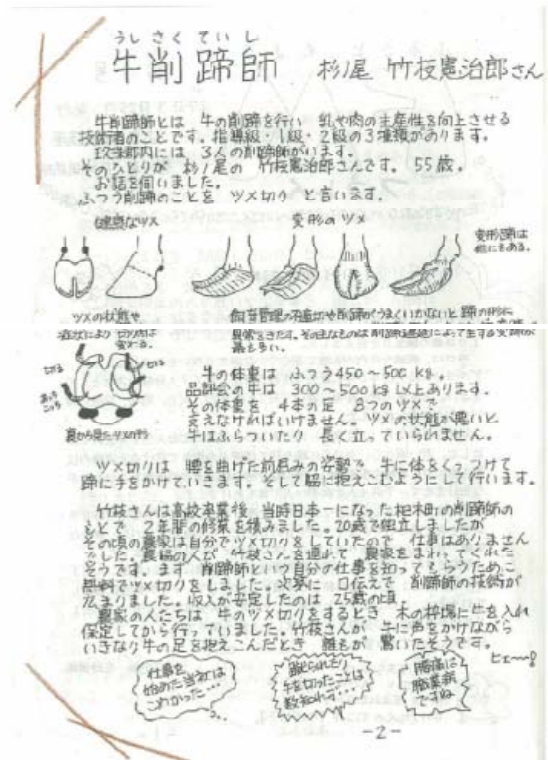 うしさくていし
牛削蹄師 杉ノ尾 竹枝憲治郎さん
牛削蹄師とは 牛の削蹄を行い 乳や肉の生産性を向上させる
技術者のことです。指導級・1級・2級の3種類があります。
郡内には 3人の削蹄師がいます。
そのひとりが 杉ノ尾の 竹枝憲治郎さんです。55歳。
お話を伺いました。
ふつう削蹄のことを ツメ切り と言います。
健康なツメ 変形のツメ
変形蹄は
他にもある。
ツメの状態や
飼育管理の不適切や削蹄がうまくいかないと 蹄の形に
症状により 切り方は
変える。
異常をきたす。その主なものは削蹄遅延によって生ずる変蹄が
最も多い。
切る
切る
裏から見たツメの形
牛の体重は ふつう450〜500kg。
品評会の牛は 300〜500kg以上あります。
その体重を 4本の足 8つのツメで
支えなければいけません。ツメの状態が悪いと
牛はふらついたり 長く立っていられません。
ツメ切りは 腰を曲げた前屈みの姿勢で 牛に体をくっつけて
蹄に手をかけていきます。そして脇に抱えこむようにして行います。
竹枝さんは高校卒業後 当時日本一になった 町の削蹄師の
もとで 2年間の修業を積みました。20歳で独立しましたが
その頃の農家は自分でツメ切りをしていたので 仕事はありません
でした。農協の人が 竹枝さんを連れて 農家をまわってくれた
そうです。まず 削蹄師という自分の仕事を知ってもらうために
無料でツメ切りをしました。次第に 口伝えで 削蹄師の技術が
広まりました。収入が安定したのは 25歳の頃。
農家の人たちは 牛のツメ切りをするとき 木の枠場に牛を入れ
保定してから行っていました。竹枝さんが 牛に声をかけながら
いきなり牛の足を抱えこんだとき 誰もが 驚いたそうです。
ヒェ〜〜!
仕事を
始めた当初は
こわかった…
蹴られたり
牛を切ったことは
数知れず…
腰痛は
職業病
ですね
-2-